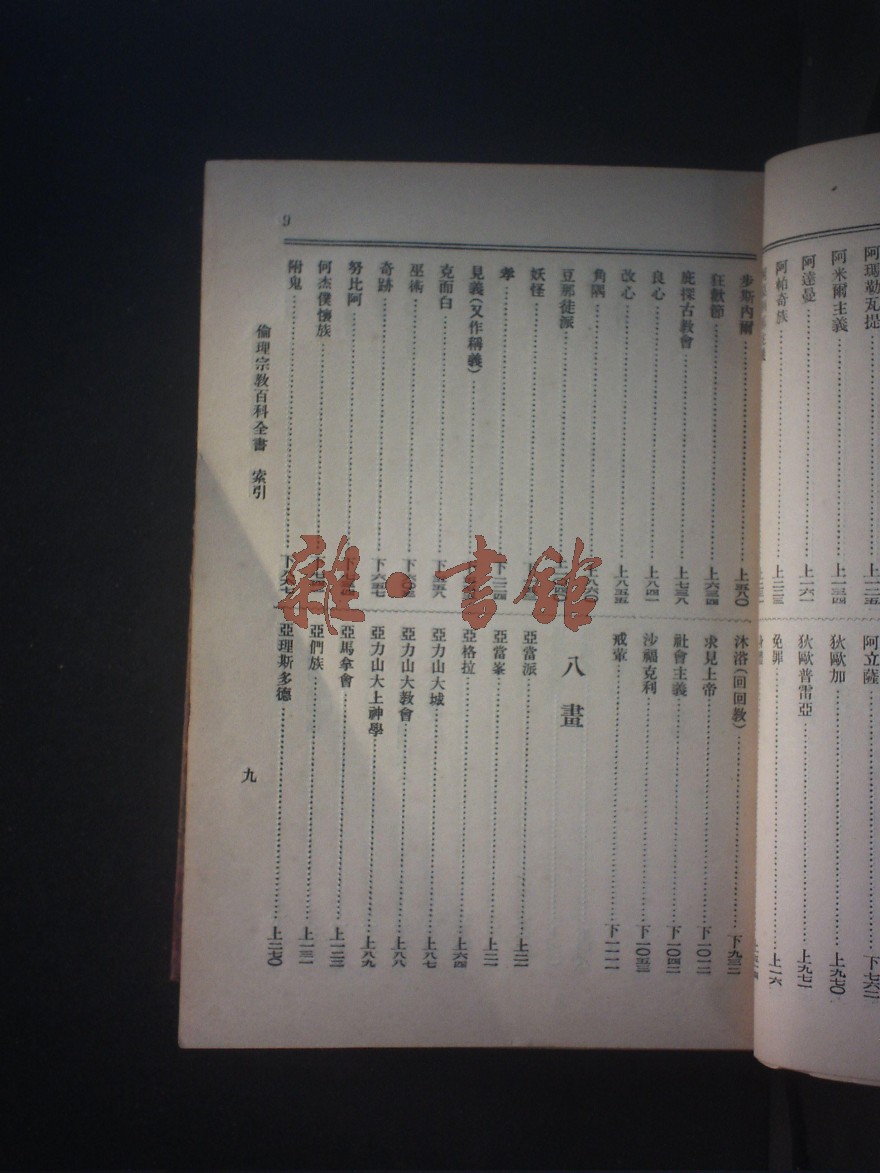 阿瑪勒瓦提……上一二五
阿米爾主義……上一三四
阿達曼……上一六一
阿帕奇族……上二三三
阿立薩……下七六二
狄歐加……上九七〇
狄歐普雷亞……上九七一
免罪……上一六
9
步斯內爾……上五八〇
狂歡節……上六三四
庇探古教會……上七三八
良心……上八四一
改心……上八五五
角隅……上八六〇
豆那徒派……上
妖怪……下
孝……下一二四
見義(又作稱義)……下
克而白……下
巫術……下六〇三
奇跡……下六五七
努比阿……下
何杰僕懷族……下
附鬼……下
沐浴(回回教)……下九三二
求見上帝……下一〇一二
社會主義……下一〇四二
沙福克利……下一〇五三
戒葷……下一一一一
八畫
亞當派……上二一
亞當峯……上二一
亞格拉……上六四
亞力山大城……上八七
亞力山大教會……上八八
亞力山大上神學……上八九
亞馬拿會……上一二三
亞們族……上一三一
亞理斯多德……上二七〇
倫理宗教百科全書 索引
九
雜·書館